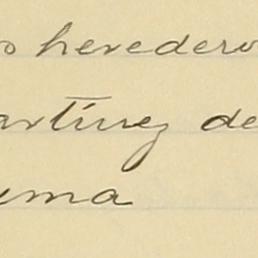 os heredero
artínez de
uma